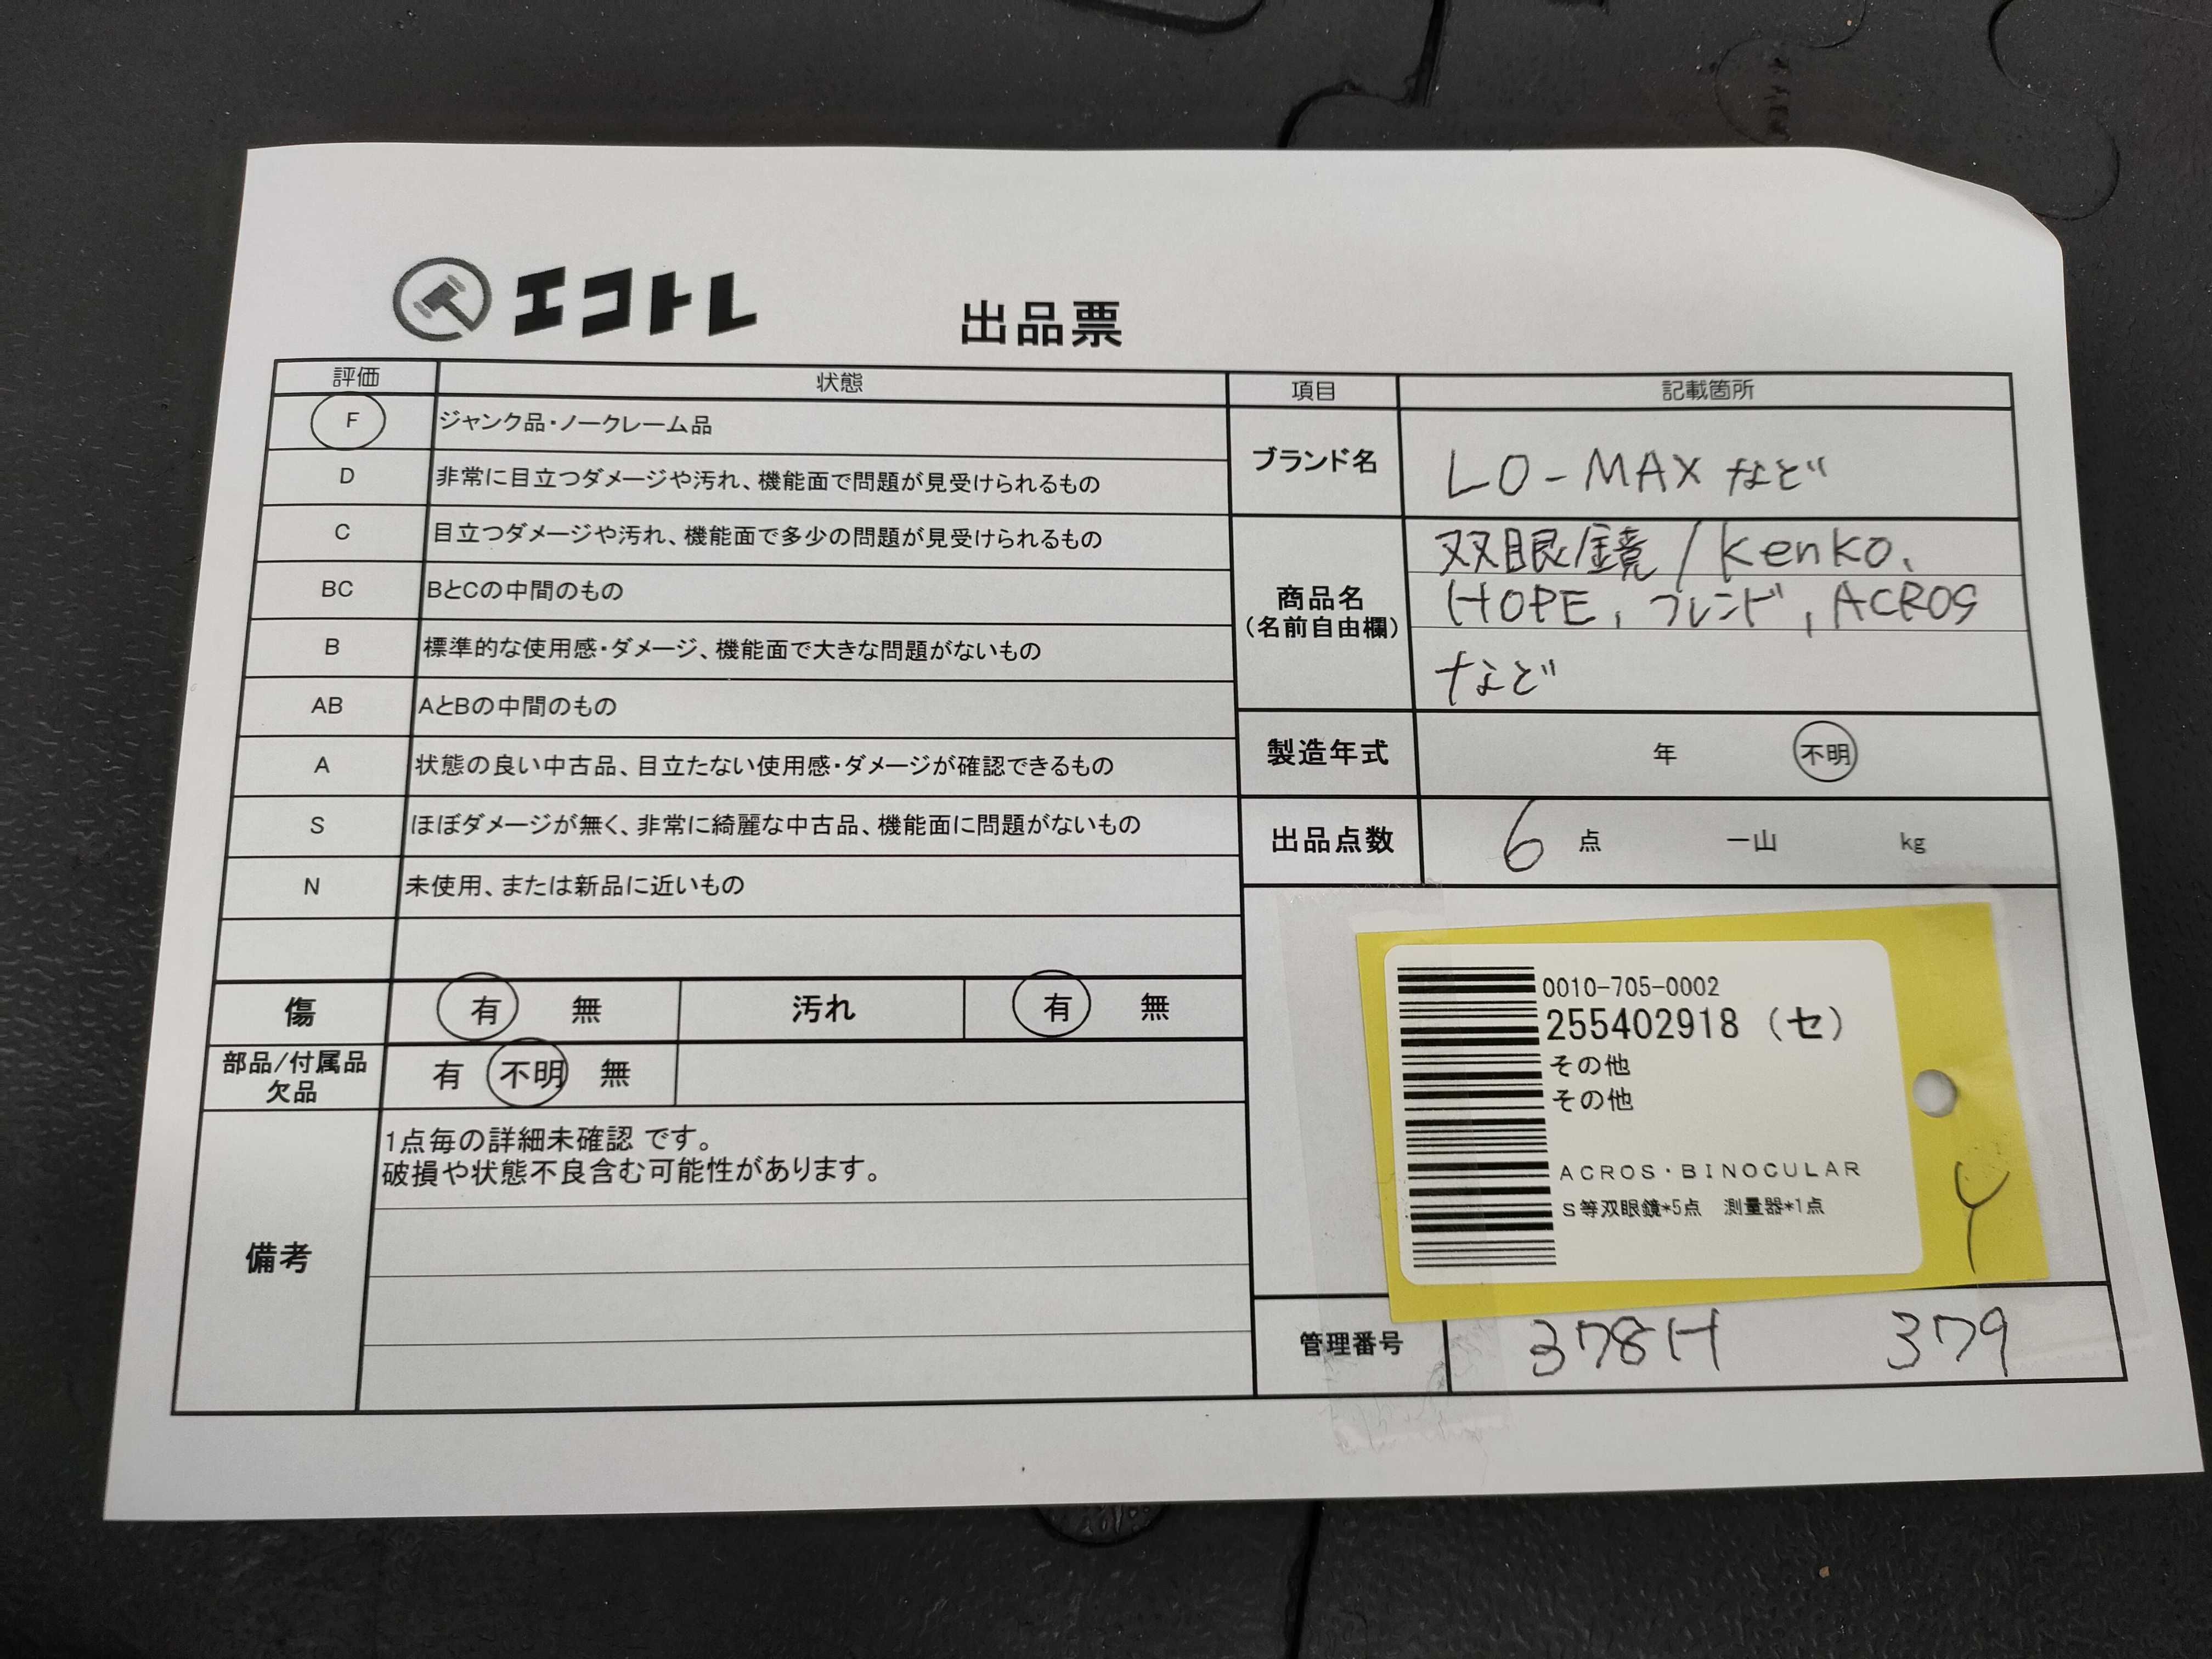 エコトレ
出品票
評価 状態
F ジャンク品・ノークレーム品
D 非常に目立つダメージや汚れ、機能面で問題が見受けられるもの
C 目立つダメージや汚れ、機能面で多少の問題が見受けられるもの
BC BとCの中間のもの
B 標準的な使用感・ダメージ、機能面で大きな問題がないもの
AB AとBの中間のもの
A 状態の良い中古品、目立たない使用感・ダメージが確認できるもの
S ほぼダメージが無く、非常に綺麗な中古品、機能面に問題がないもの
N 未使用、または新品に近いもの
傷 有 無 汚れ 有 無
部品/付属品
欠品
有 不明 無
備考
1点毎の詳細未確認 です。
破損や状態不良含む可能性があります。
項目 記載箇所
ブランド名 LO-MAX など
商品名
(名前自由欄)
双眼鏡/Kenko、
HOPE, フレンド, ACROS
など
製造年式 年 不明
出品点数 6 点 一山 kg
0010-705-0002
255402918 (セ)
その他
その他
ACROS・BINOCULAR
S等双眼鏡*5点 測量器*1点
Y
管理番号 378H 379